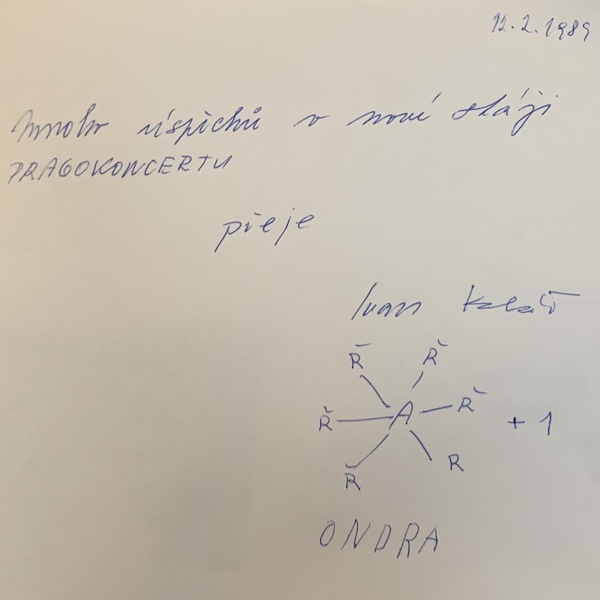 12.2.1989
Mnoho úspěchů v nové stáji
PRAGOKONCERTU
přeje
Ivan
Ř Ř
Ř A Ř + 1
Ř R
ONDRA